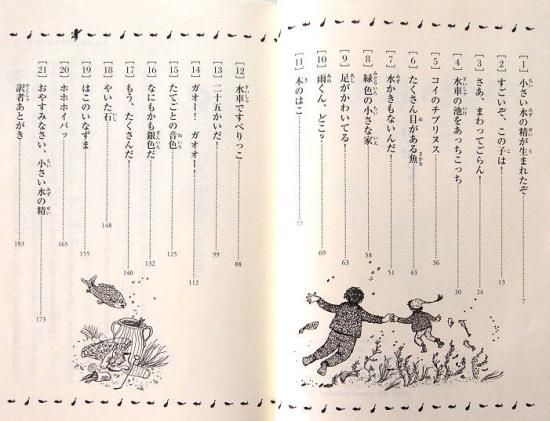 ［1］小さい水の精が生まれたぞ……7
［2］すごいぞ、この子は！……15
［3］さあ、まわってごらん！……24
［4］水車の池をあっちこっち……30
［5］コイのチプリヌス……36
［6］たくさん目がある魚……43
［7］水かきもないんだ！……51
［8］緑色の小さな家……58
［9］足がかわいてる！……63
［10］雨くん、どこ？……69
［11］木のはこ……77
［12］水車ですべりっこ……88
［13］二十五かいだ！……99
［14］ガオー！　ガオオー！……112
［15］たてごとの音色……125
［16］なにもかも銀色だ……132
［17］もう、たくさんだ！……140
［18］やいた石……148
［19］はこのいなずま……155
［20］ホホホイバッ……165
［21］おやすみなさい、小さい水の精……173
訳者あとがき……183